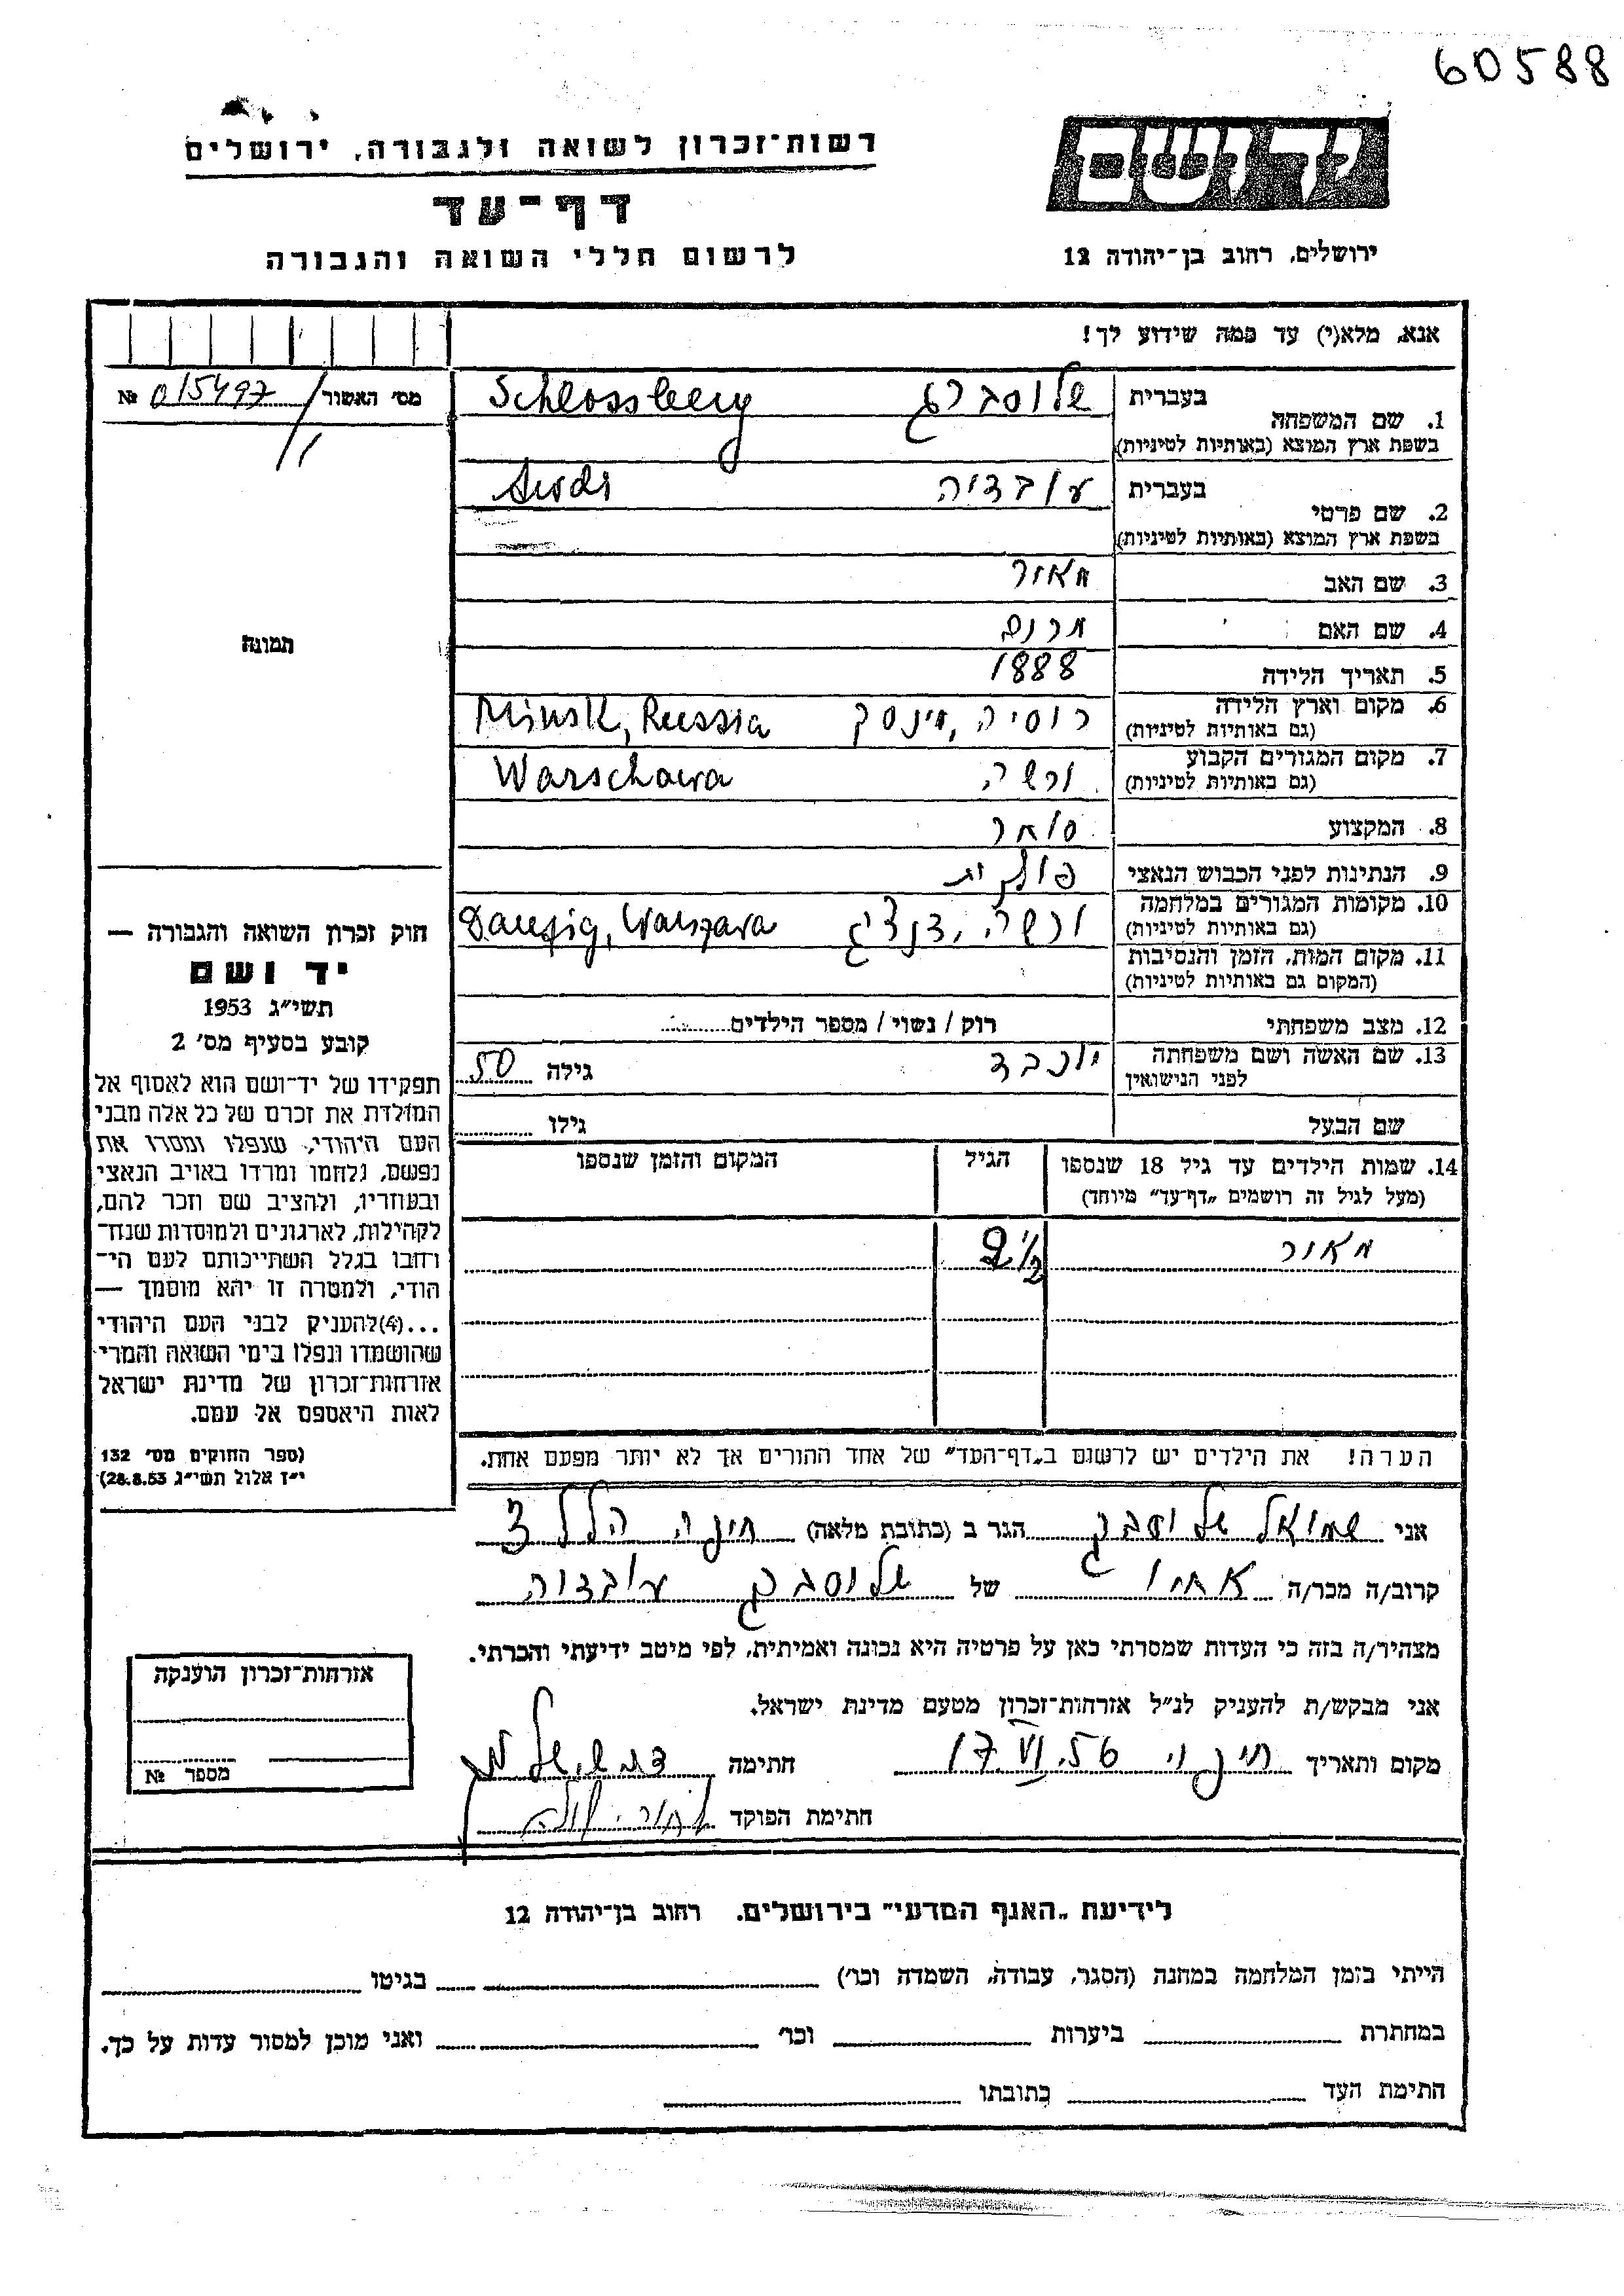 60588
יד ושם
רשות־זכרון לשואה ולגבורה, ירושלים
דף־עד
לרשום חללי השואה והגבורה
ירושלים, רחוב בן־יהודה 12
אנא, מלא(י) עד כמה שידוע לך!
מס׳ האשור № 015497
1. שם המשפחה בעברית שלוסברג Schlossberg
בשפת ארץ המוצא (באותיות לטיניות)
2. שם פרטי בעברית עובדיה
בשפת ארץ המוצא (באותיות לטיניות)
3. שם האב מאור
4. שם האם
5. תאריך הלידה 1888
6. מקום וארץ הלידה רוסיה, מינסק Minsk, Russia
(גם באותיות לטיניות)
7. מקום המגורים הקבוע ורשה Warschawa
(גם באותיות לטיניות)
8. המקצוע סוחר
9. הנתינות לפני הכבוש הנאצי פולנית
10. מקומות המגורים במלחמה ורשה, דנציג Danzig, Warszawa
(גם באותיות לטיניות)
11. מקום המות, הזמן והנסיבות
(המקום גם באותיות לטיניות)
12. מצב משפחתי רוק / נשוי / מספר הילדים
13. שם האשה ושם משפחתה יוכבד גילה 50
לפני הנישואין
שם הבעל גילו
14. שמות הילדים עד גיל 18 שנספו הגיל המקום והזמן שנספו
(מעל לגיל זה רושמים „דף־עד” מיוחד)
מאור
הערה! את הילדים יש לרשום ב„דף־העד” של אחד ההורים אך לא יותר מפעם אחת.
תמונה
חוק זכרון השואה והגבורה —
יד ושם
תשי״ג 1953
קובע בסעיף מס׳ 2
תפקידו של יד־ושם הוא לאסוף אל
המולדת את זכרם של כל אלה מבני
העם היהודי, שנפלו ומסרו את
נפשם, נלחמו ומרדו באויב הנאצי
ובעוזריו, ולהציב שם וזכר להם,
לקהילות, לארגונים ולמוסדות שנח־
רחבו בגלל השתייכותם לעם הי־
הודי, ולמטרה זו יהא מוסמך —
...(4)להעניק לבני העם היהודי
שהושמדו ונפלו בימי השואה והמרי
אזרחות־זכרון של מדינת ישראל
לאות היאספם אל עמם.
(ספר החוקים מס׳ 132
י״ז אלול תשי״ג 28.8.53)
אני שמואל שלוסברג הגר ב (כתובת מלאה) חיפה הלל 3
קרוב/ה מכר/ה אחיו של שלוסברג עובדיה
מצהיר/ה בזה כי העדות שמסרתי כאן על פרטיה היא נכונה ואמיתית, לפי מיטב ידיעתי והכרתי.
אני מבקש/ת להעניק לנ״ל אזרחות־זכרון מטעם מדינת ישראל.
מקום ותאריך 17.VI.56 חתימה
חתימת הפוקד
אזרחות־זכרון הוענקה
מספר №
לידיעת „האגף המדעי” בירושלים, רחוב בן־יהודה 12
הייתי בזמן המלחמה במחנה (הסגר, עבודה, השמדה וכו׳) בגיטו
במחתרת ביערות וכו׳ ואני מוכן למסור עדות על כך.
התימת העד כתובתו